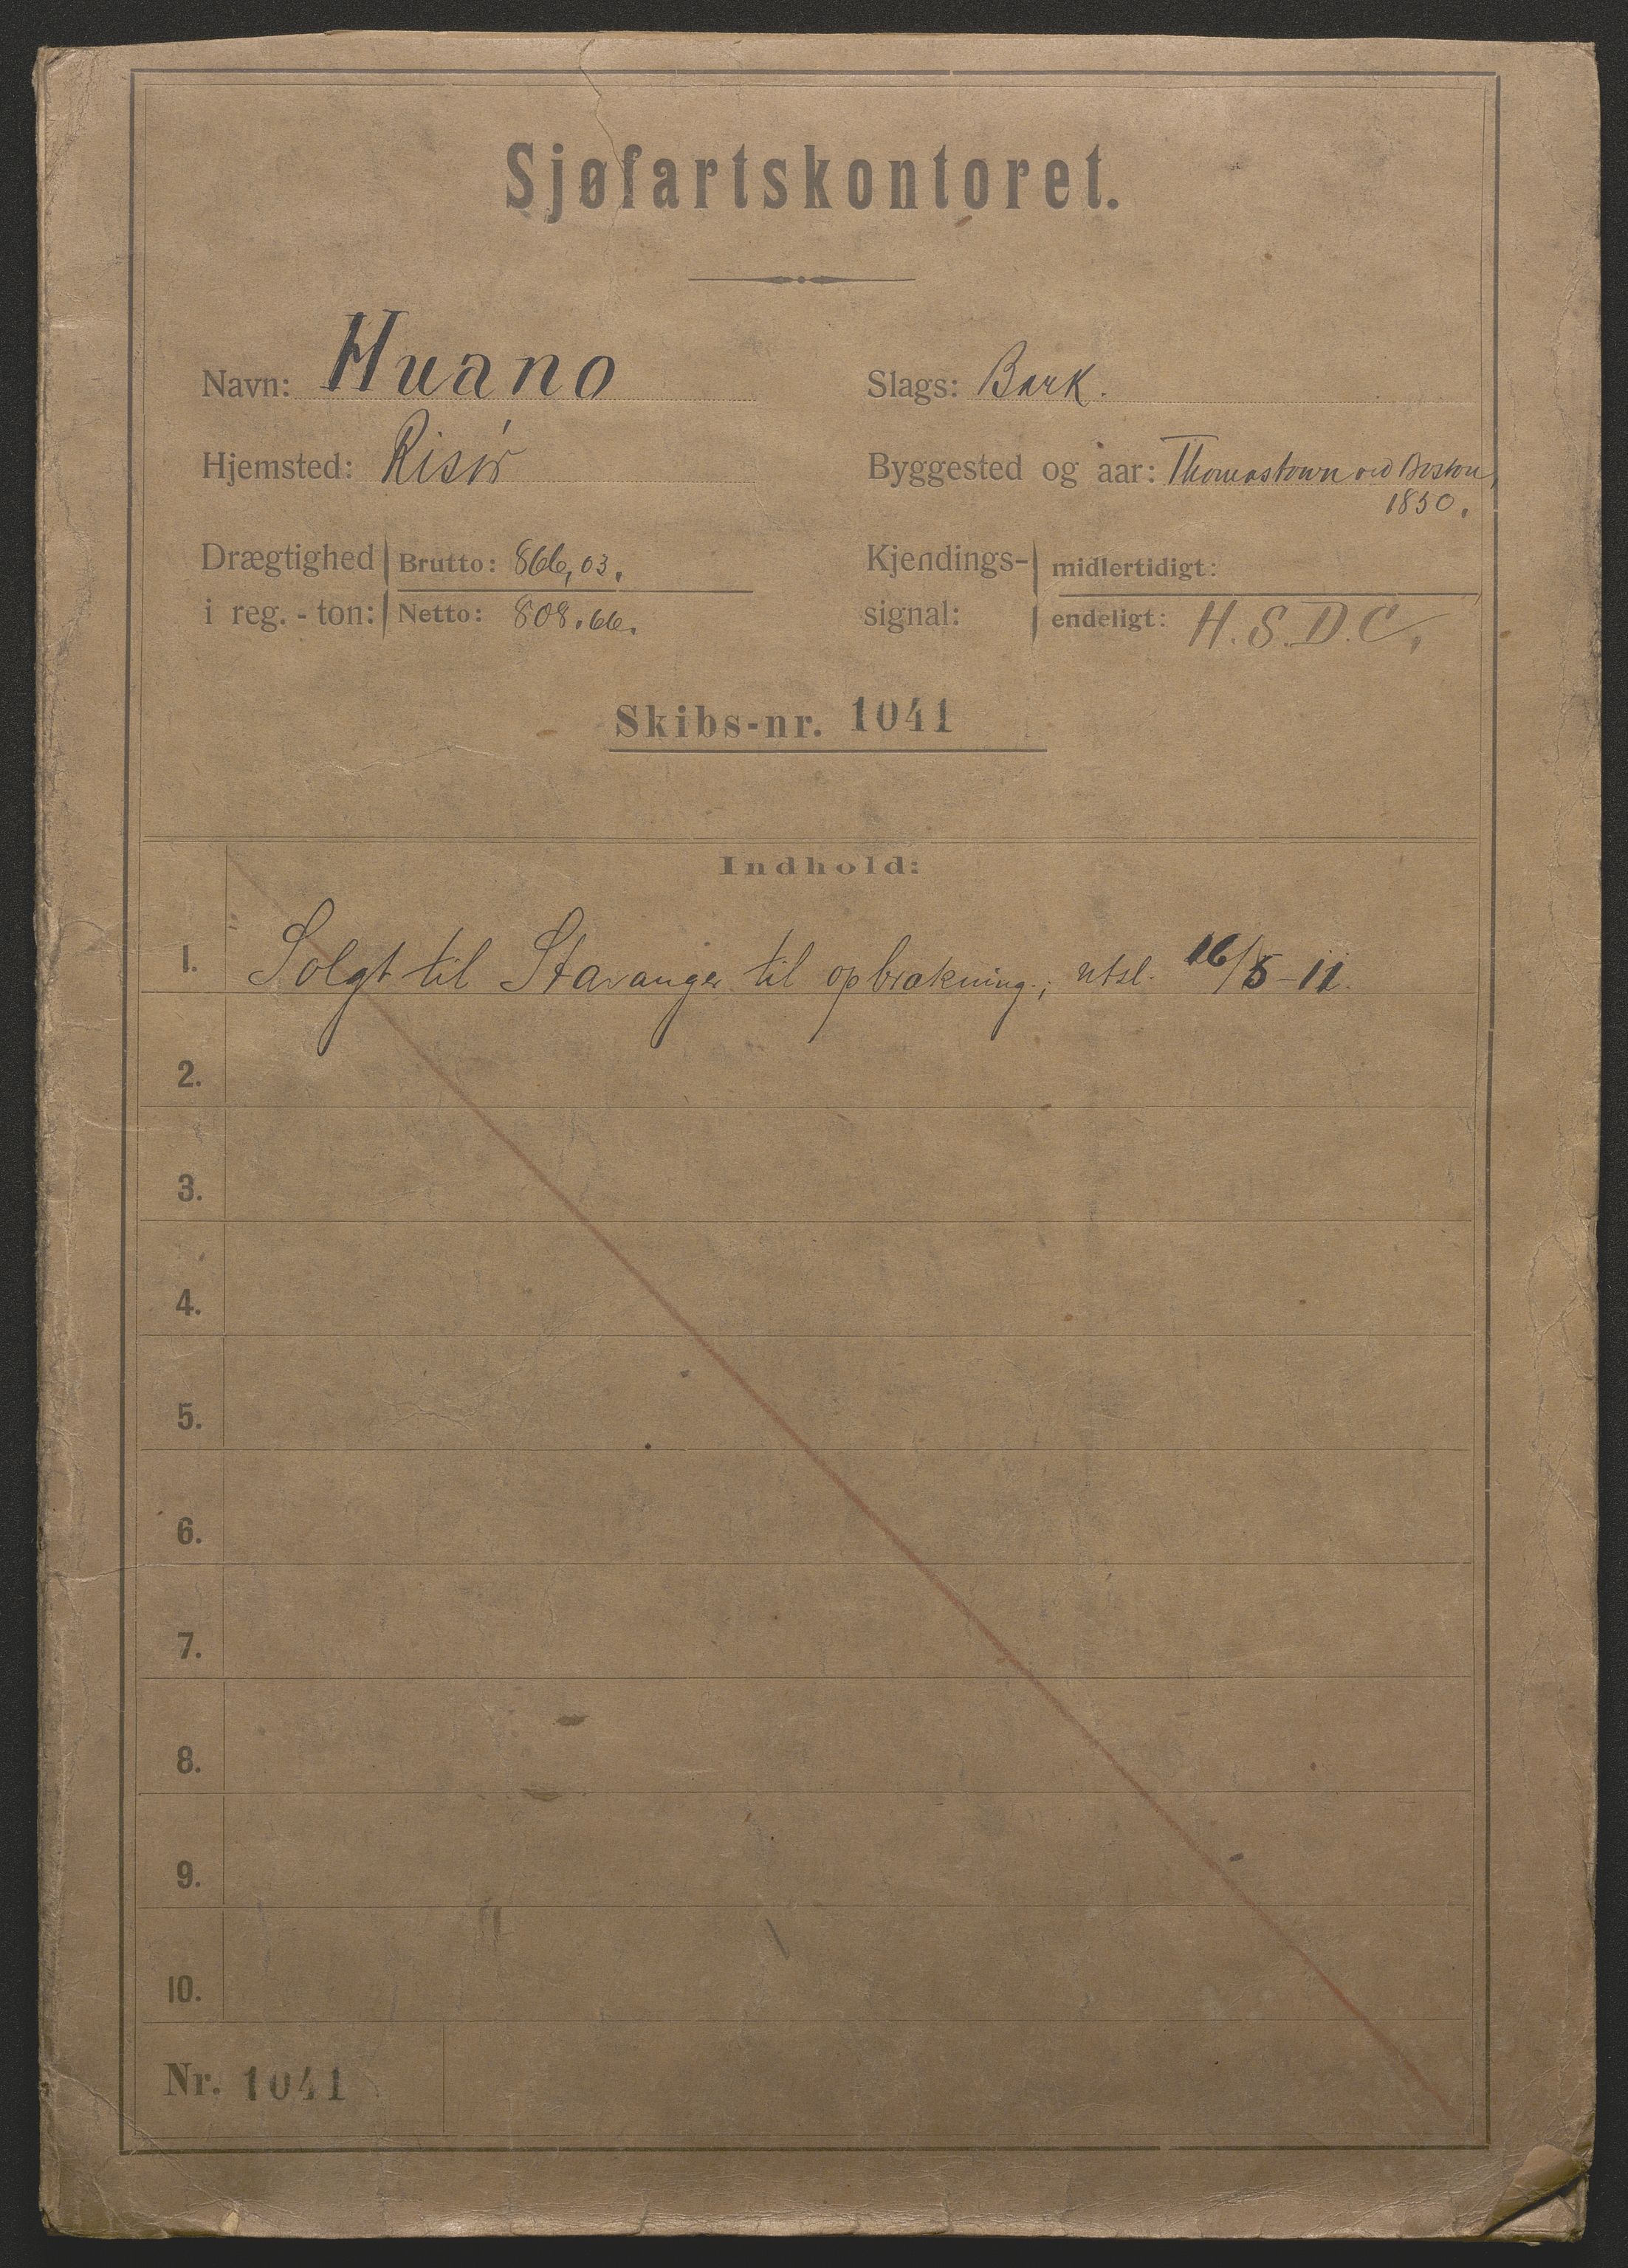 Sjøfartskontoret.
Navn: Huano
Slags: Bark.
Hjemsted: Risør
Byggested og aar: Thomastown ved Boston,
1850.
Drægtighed i reg.-ton: Brutto: 866,03.
Netto: 808.66.
Kjendingssignal: midlertidigt:
endeligt: H.S.D.C.
Skibs-nr. 1041
Indhold:
1. Solgt til Stavanger til opbrækning; utsl. 16/5-11.
2.
3.
4.
5.
6.
7.
8.
9.
10.
Nr. 1041